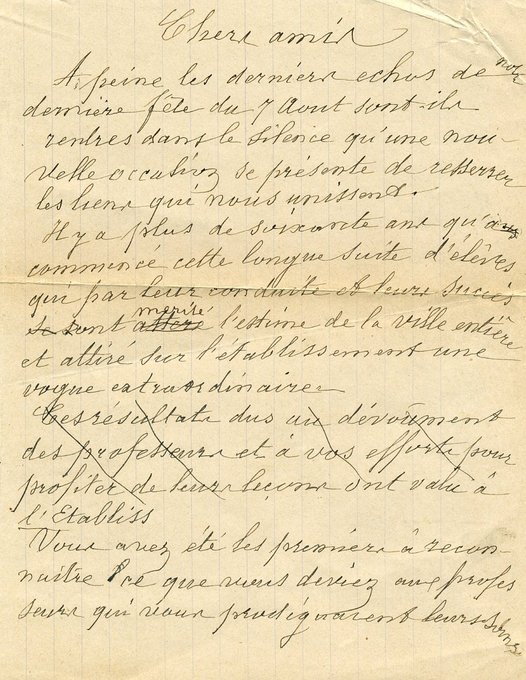 Chers amis
A peine les derniers echos de notre
dernière fête du 7 Aout sont-ils
rentres dans le silence qu'une nou-
velle occasion se présente de resserrer
les liens qui nous unissent.
Il y a plus de soixante ans qu'a
commencé cette longue suite d'élèves
qui par leur conduite et leurs succès
se sont attiré mérité l'estime de la ville entière
et attiré sur l'établissement une
vogue extraordinaire.
Ces résultats dus au dévoûment
des professeurs et à vos efforts pour
profiter de leurs leçons ont valu à
l'Etabliss
Vous avez été les premiers à recon-
naître ce que vous deviez aux profes
seurs qui vous prodiguaient leurs soins